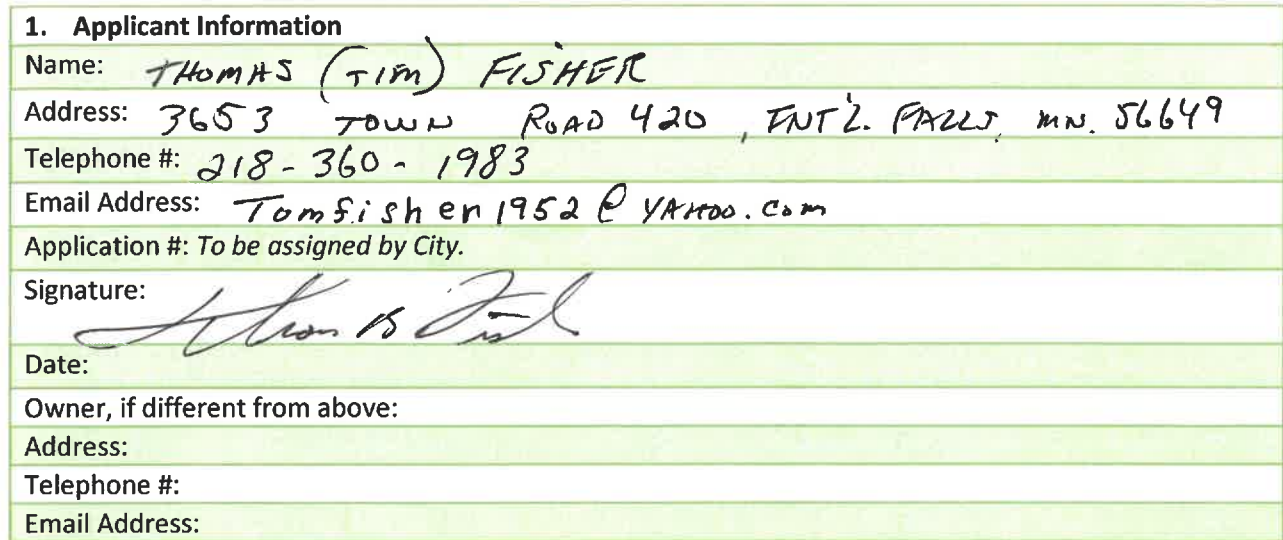 1. Applicant Information
Name: THOMAS (TIM) FISHER
Address: 3653 TOWN ROAD 420, INT'L. FALLS, MN. 56649
Telephone #: 218-360-1983
Email Address: Tomfisher1952@YAHOO.com
Application #: To be assigned by City.
Signature:
Date:
Owner, if different from above:
Address:
Telephone #:
Email Address: